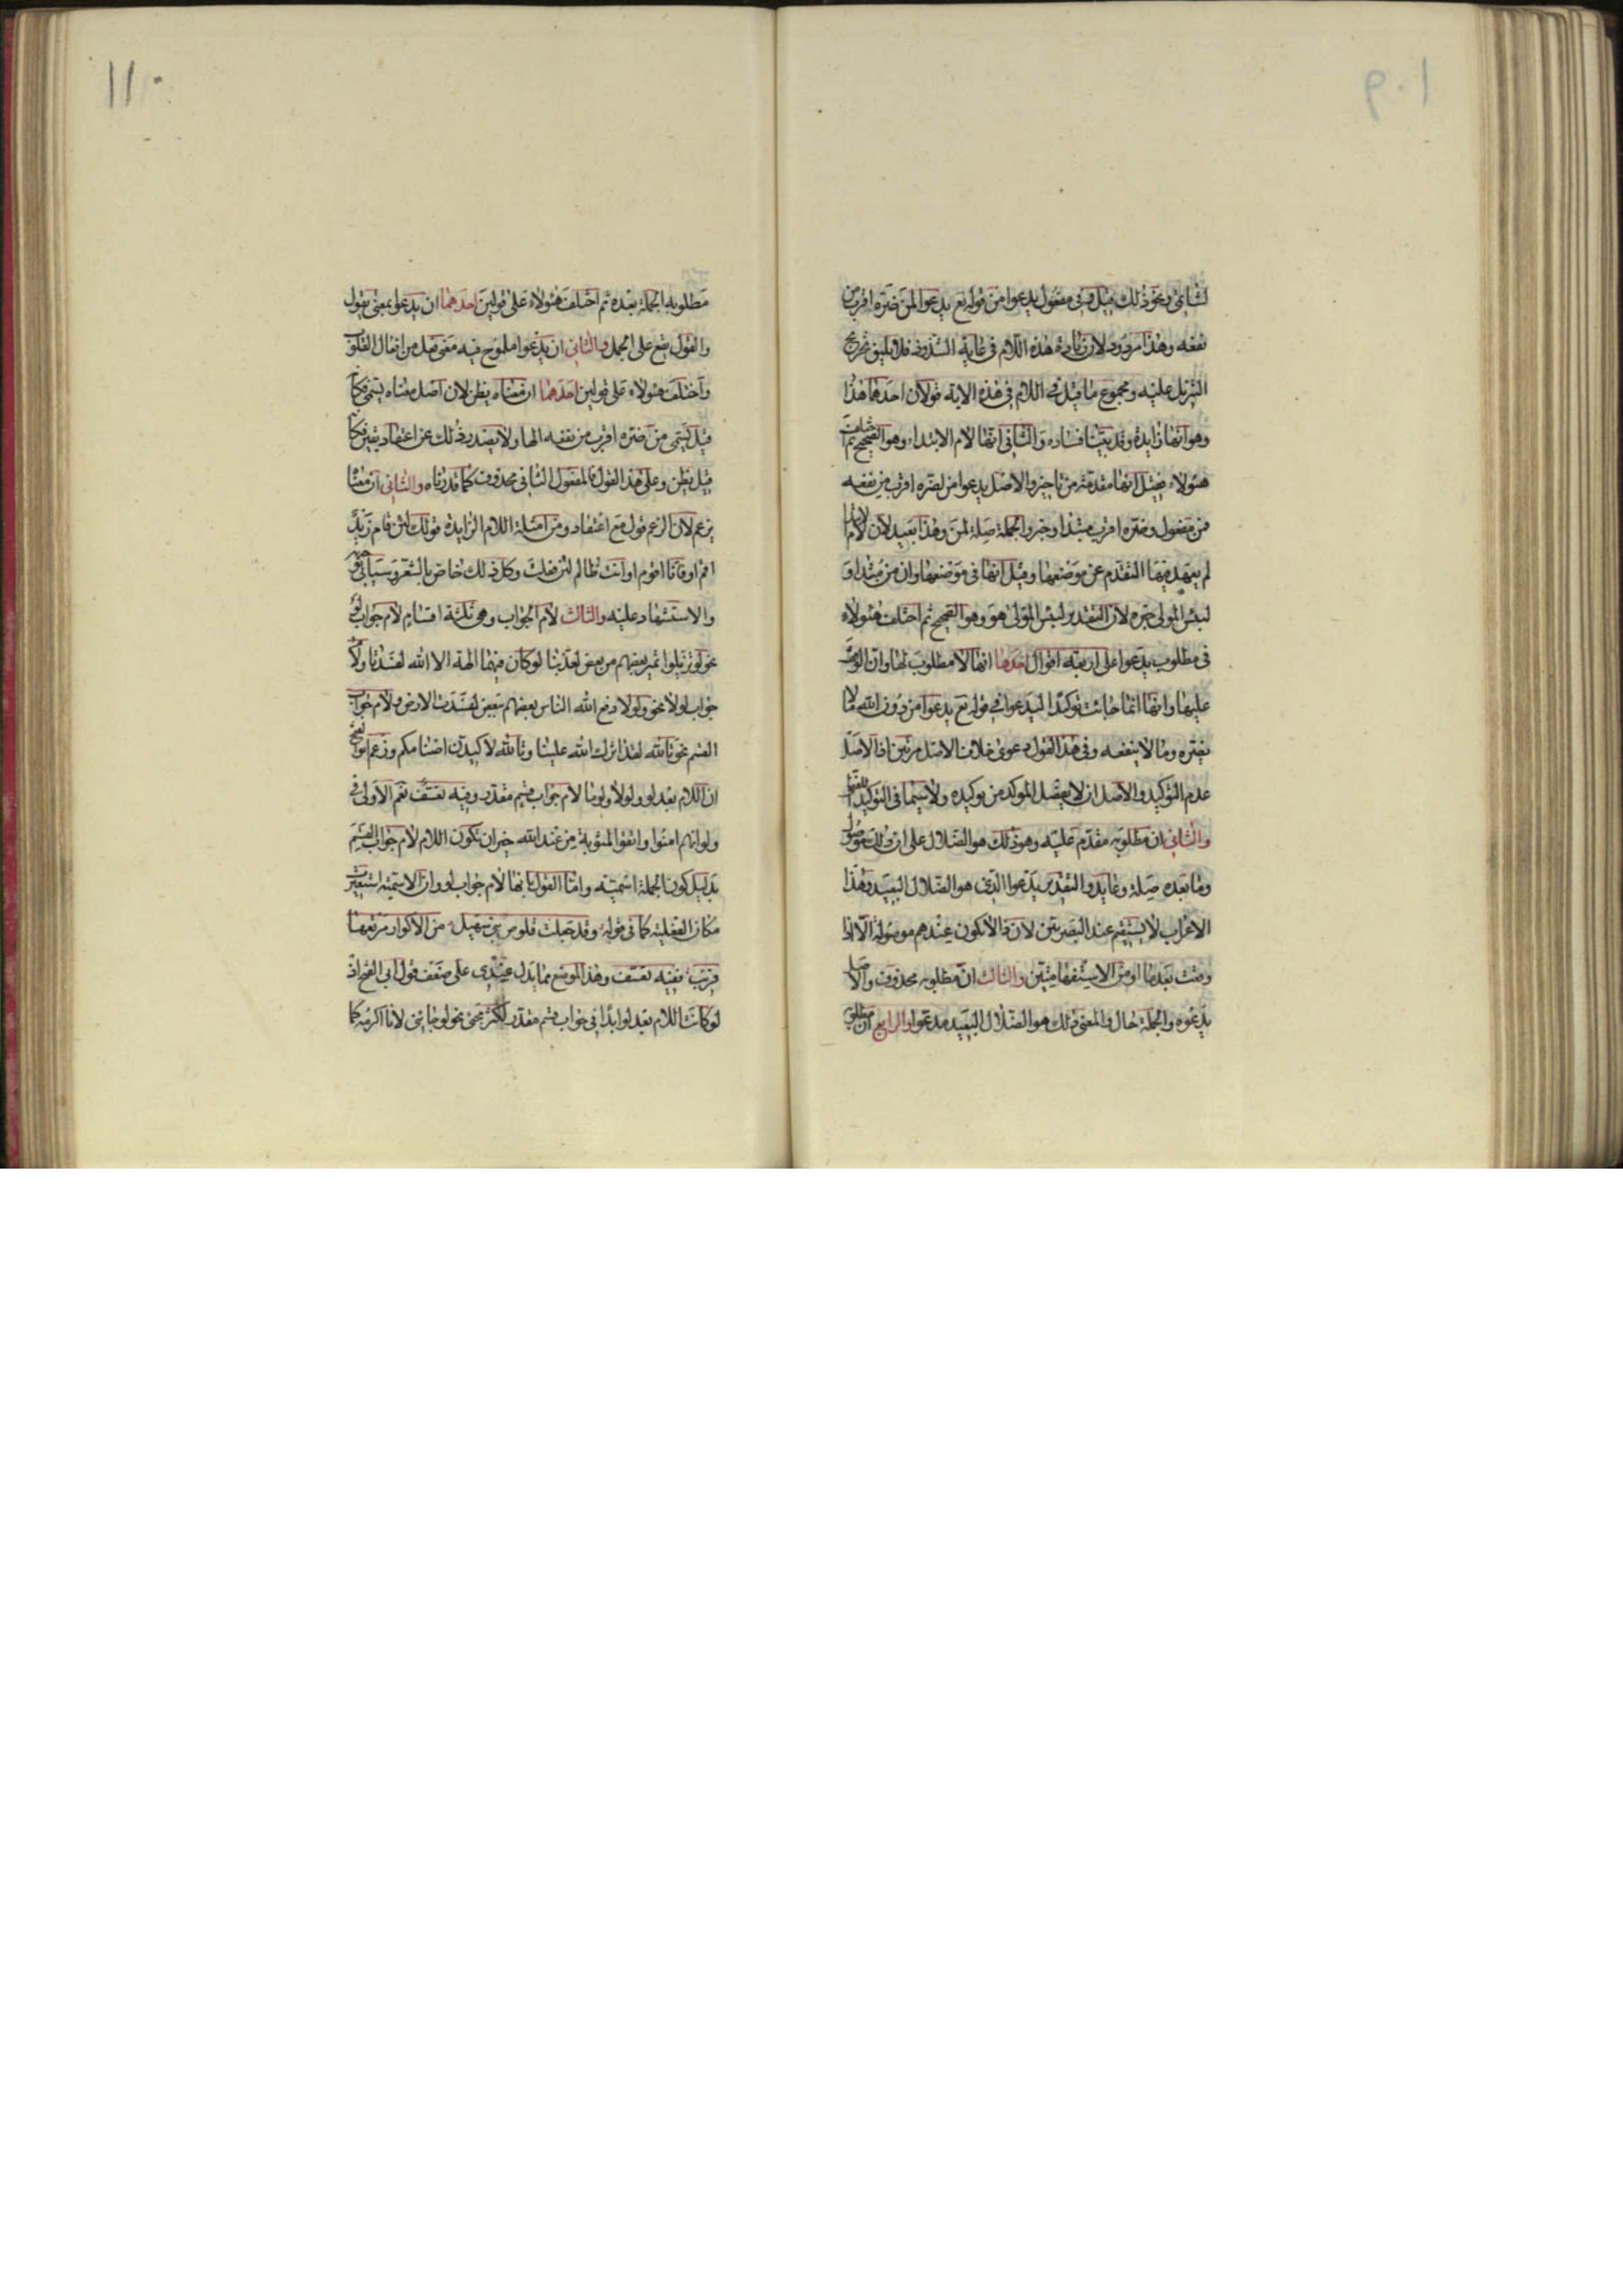 ١٠٩
لشانئ ونحو ذلك قيل وفى مفعول يدعوا من قوله تع يدعوا لمن ضره اقرب من
نفعه وهذا مردود لان زيادة هذه اللام فى غاية الشذوذ فلا يليق تخريج
التنزيل عليه ومجموع ما قيل فى اللام فى هذه الاية قولان احدهما هذا
وهو انها زايدة وقد بينا فساده والثانى انها لام الابتداء وهو الصحيح ثم اختلف
هئولاء فقيل انها مقدمة من تاخير والاصل يدعوا من لضره اقرب من نفعه
فمن مفعول وضره اقرب مبتدا وخبر والجملة صلة لمن وهذا بعيد لان لام الابتداء
لم يعهد فيها التقدم عن موضعها وقيل انها فى موضعها وان من مبتدا و
لبئس المولى خبره لان التقدير لبئس المولى هو وهو الصحيح ثم اختلف هئولاء
فى مطلوب يدعوا على اربعة اقوال احدها انها لا مطلوب لها وان الوقف
عليها وانها انما جائت توكيدا ليدعوا فى قوله تع يدعوا من دون الله ما لا
يضره وما لا ينفعه وفى هذا القول دعوى خلاف الاصل مرتين اذ الاصل
عدم التوكيد والاصل ان لا يفصل الموكد من توكيده ولا سيما فى التوكيد اللفظى
والثانى ان مطلوبه مقدم عليه وهو ذلك هو الضلال على ان ذلك موصول
وما بعده صلة وعايد والتقدير يدعوا الذى هو الضلال البعيد وهذا
الاعراب لا يستقيم عند البصريين لان ذا لا تكون عندهم موصولة الا اذا
وقعت بعد ما او من الاستفهاميتين والثالث ان مطلوبه محذوف والاصل
يدعوه والجملة حال والمعنى ذلك هو الضلال البعيد مدعوا والرابع ان مطلوبه
١١٠
مطلوبه الجملة بعده ثم اختلف هئولاء على قولين احدهما ان يدعوا بمعنى يقول
والقول يقع على الجمل والثانى ان يدعوا ملموح فيه معنى فعل من افعال القلوب
واختلف هئولاء على قولين احدهما ان معناه يظن لان اصل معناه يسمى فكانه
قيل يسمى من ضره اقرب من نفعه الها ولا يصدر ذلك عن اعتقاد يقين فكانه
قيل يظن وعلى هذا القول فالمفعول الثانى محذوف كما قدرناه والثانى ان معناه
يزعم لان الزعم قول مع اعتقاد ومن امثلة اللام الزايدة قولك لئن قام زيد
اقم او فانا اقوم او انت ظالم لئن فعلت وكل ذلك خاص بالشعر وسياتى توجيهه
والاستشهاد عليه والثالث لام الجواب وهى ثلثة اقسام لام جواب لو
نحو لو تزيلوا لعذبنا لو كان فيهما الهة الا الله لفسدتا ولام
جواب لولا نحو ولولا دفع الله الناس بعضهم ببعض لفسدت الارض ولام جواب
القسم نحو تالله لقد اثرك الله علينا وتالله لاكيدن اصنامكم وزعم ابو الفتح
ان اللام بعد لو ولولا ولوما لام جواب قسم مقدر وفيه تعسف نعم الاولى فى
ولو انهم امنوا واتقوا لمثوبة من عند الله خير ان تكون اللام لام جواب القسم
بدليل كون الجملة اسمية واما القول بانها لام جواب لو وان الاسمية استعيرت
مكان الفعلية كما فى قوله وقد جعلت قلوص بنى سهيل من الاكوار مرتعها
قريب ففيه تعسف وهذا الموضع مما يدل عندى على ضعف قول ابى الفتح اذ
لو كانت اللام بعد لو ابدا فى جواب قسم مقدر لكثر مجئ نحو لو جائنى لانا اكرمه كما